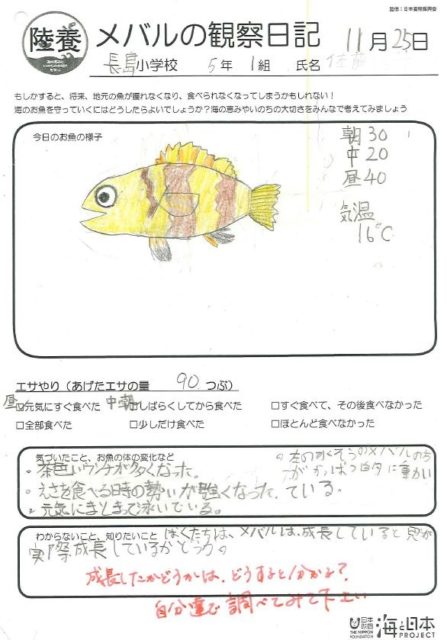 監修:日本養殖振興会
陸養
メバルの観察日記 11月25日
長島小学校 5年 1組 氏名
もしかすると、将来、地元の魚が獲れなくなり、食べられなくなってしまうかもしれない!
海のお魚を守っていくにはどうしたらよいでしょうか?海の恵みやいのちの大切さをみんなで考えてみましょう
今日のお魚の様子
朝30
中20
昼40
気温
16℃
エサやり(あげたエサの量 90 つぶ)
昼□元気にすぐ食べた 中朝□しばらくしてから食べた □すぐ食べて、その後食べなかった
□全部食べた □少しだけ食べた □ほとんど食べなかった
気づいたこと、お魚の体の変化など
・茶色いウンチが多くなった。
・えさを食べる時の勢いが強くなっている。
・元気にまとまで泳いでいる。
・左の水そうのメバルのち
わからないこと、知りたいこと ぼくたちは、メバルは、成長していると思うが
実際成長しているかどうか。
成長したかどうかは、どうすると分かる?
自分達で調べてみて下さい
日本財団
THE NIPPON FOUNDATION
海と日本
PROJECT